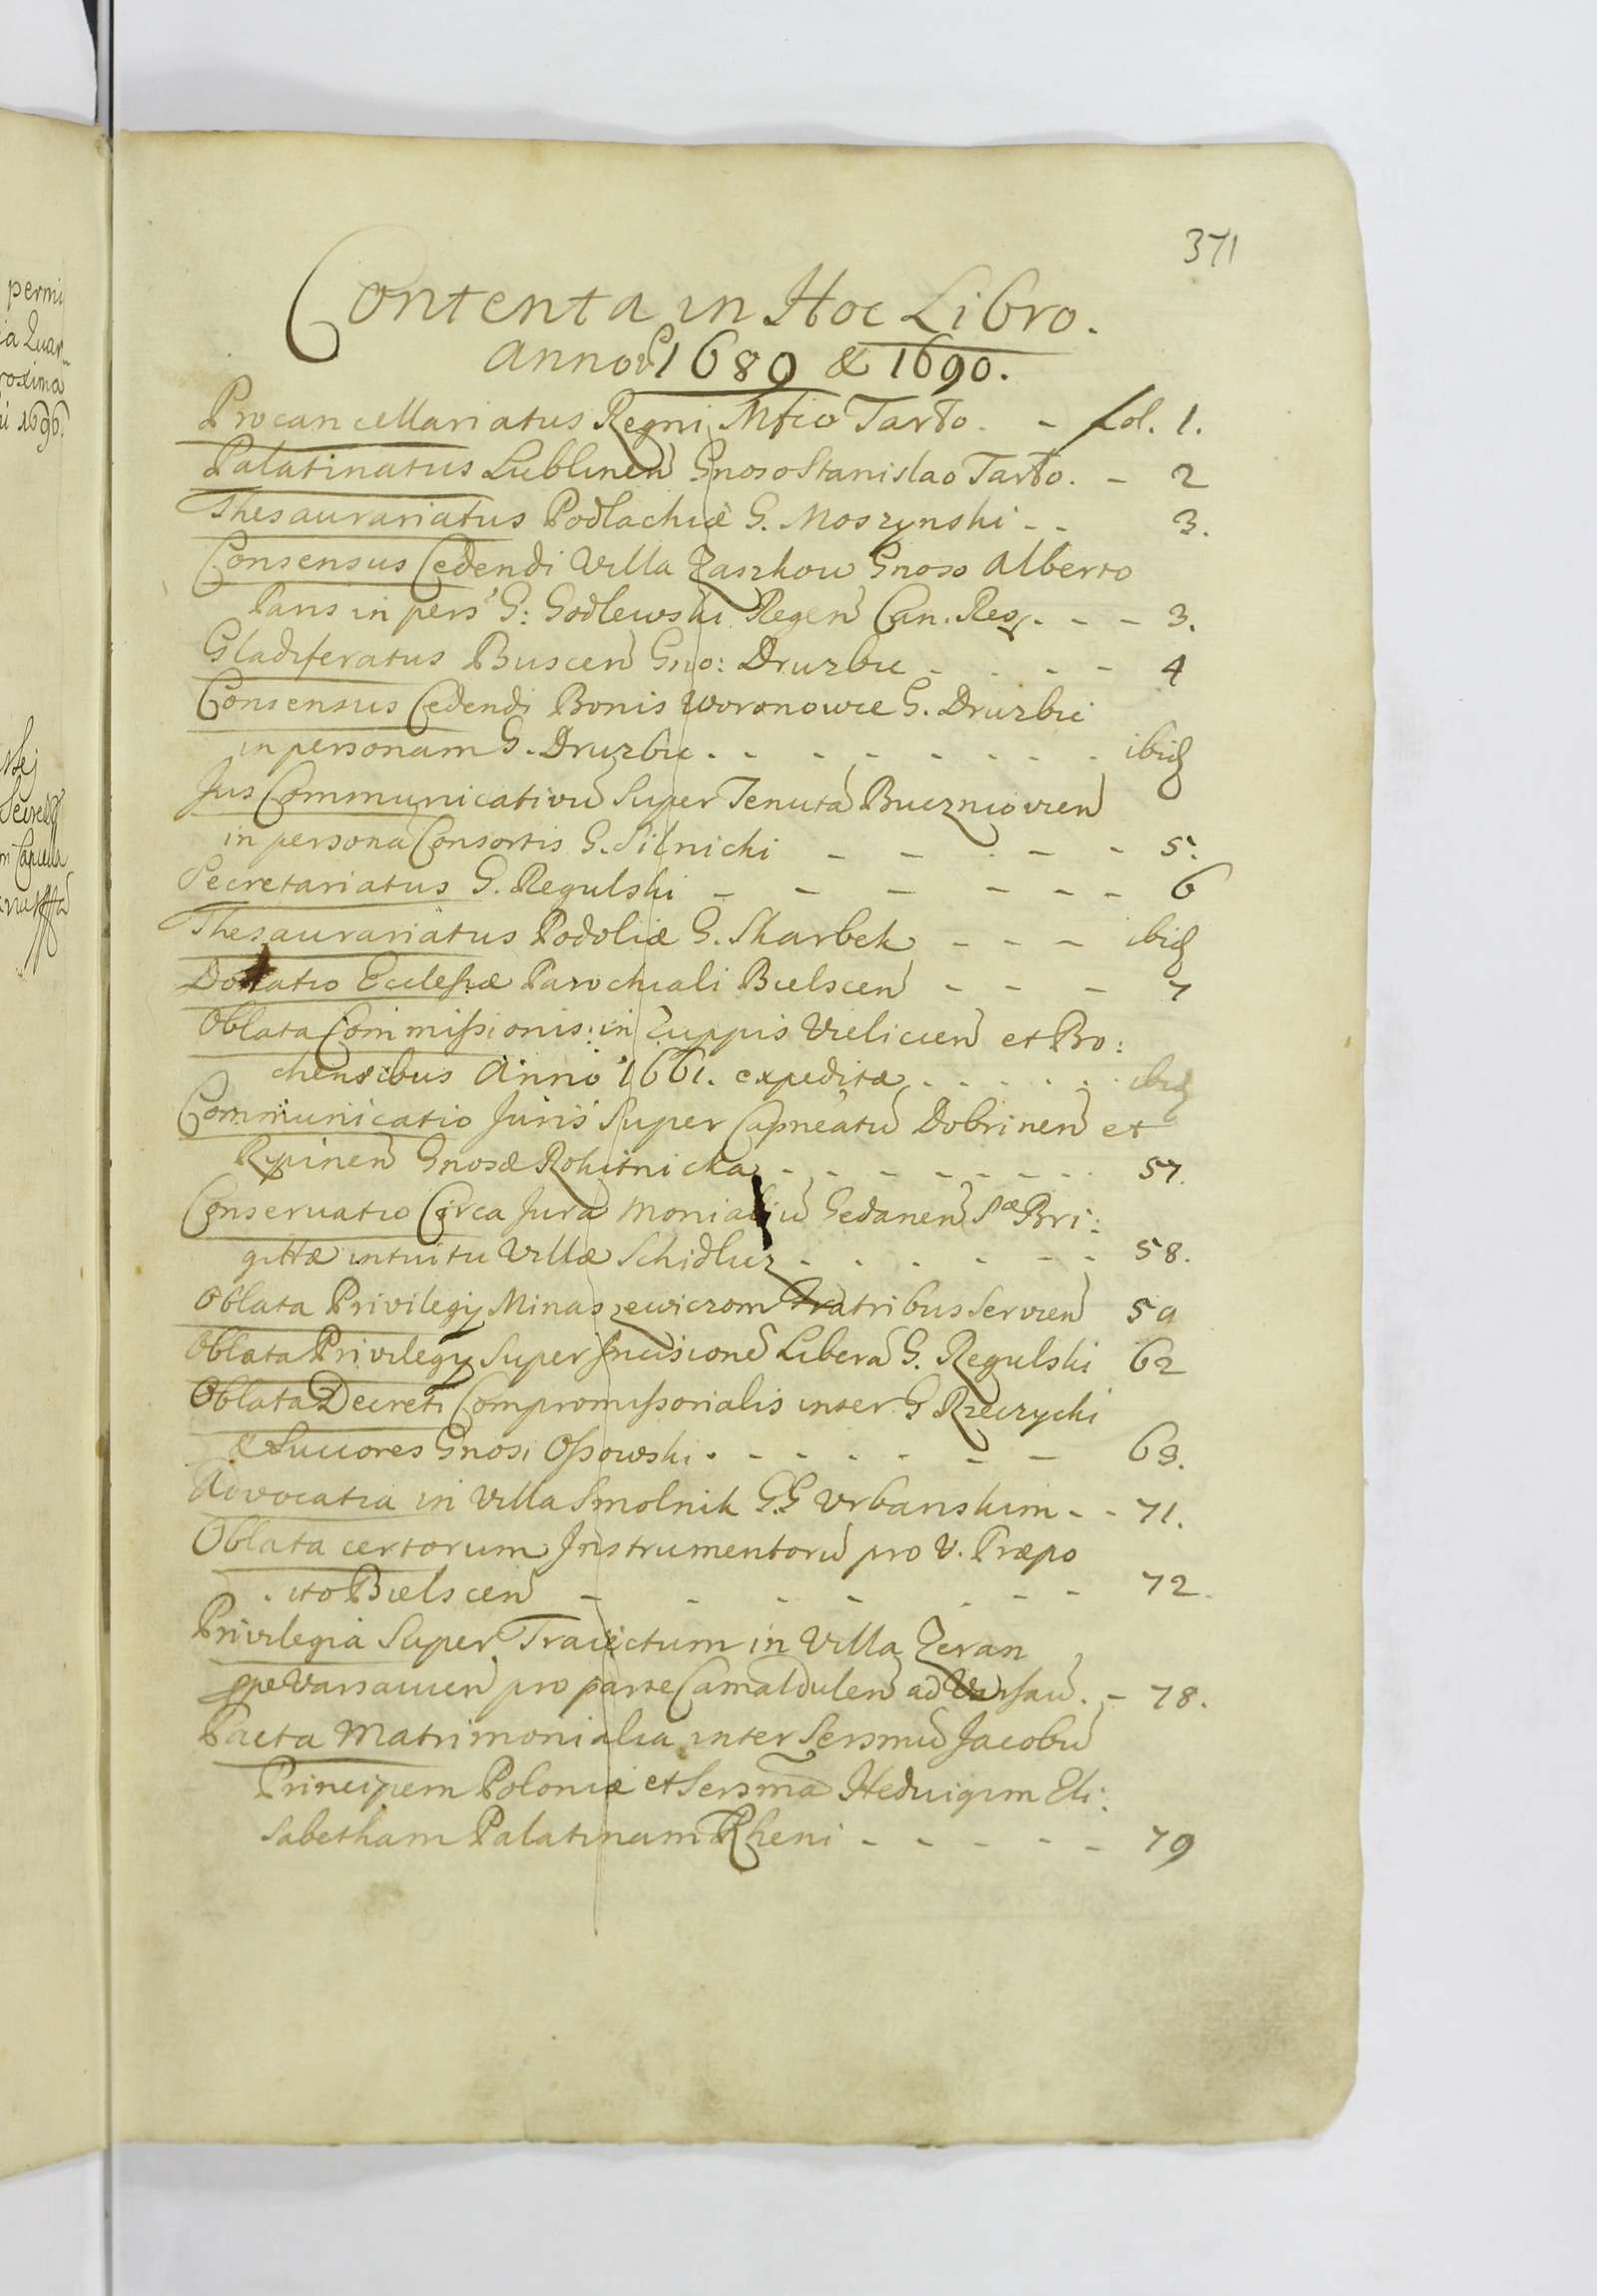 371
Contenta in Hoc Libro.
Annor 1689 & 1690.
Procancellariatus Regni Mfico Tarło. - fol. 1.
Palatinatus Lublinen Gnoso Stanislao Tarło. - 2
Thesaurariatus Podlachiæ G. Moszynski - - 3.
Consensus Cedendi Villa Zaszkow Gnoso Alberto
Paris in pers G: Godlewski Regen Can. Reg. - - - 3.
Gladiferatus Buscen Gno: Druzbic - - - - 4
Consensus Cedendi Bonis Woronowce G. Druzbic
in personam G. Druzbic . - - - - - - - ibid
Jus Communicativu Super Tenuta Buczniovien
in persona Consortis G. Silnicki - - - - - 5.
Secretariatus G. Regulski - - - - - - 6
Thesaurariatus Podoliæ G. Skarbek - - - ibid
Dotatio Ecclesiæ Parochiali Bielscen - - - 7
Oblata Commissionis in Zuppis Vieliciен et Bo:
chensibus Anno 1661. expeditæ - - - - - - ibid
Communicatio Juris Super Capneatu Dobrinen et
Rypinen Gnosæ Rokitnicka - - - - - - - 57.
Conservatio Circa Jura Monialiu Gedanen Sæ Bri:
gittæ intuitu Villæ Schidlicz - - - - - - 58.
Oblata Privilegij Minaszewiczom Fratribus Servien 59
Oblata Privilegij Super Incisione Libera G. Regulski 62
Oblata Decreti Compromissorialis inter G Rzeczycki
& Succores Gnosi Ossowski . - - - - - - 63.
Advocatia in Villa Smolnik G.G Urbanskim - - 71.
Oblata certorum Instrumentoru pro V. Præpo
sito Bielscen - - - - - - - 72.
Privilegia Super Traiectum in Villa Zeran
ppe Varsavien pro parte Camaldulen ad Varsav. - 78.
Pacta Matrimonialia inter Sersmu Jacobu
Principem Poloniæ et Sersma Heduigim Eli:
sabetham Palatinam Rheni - - - - - 79